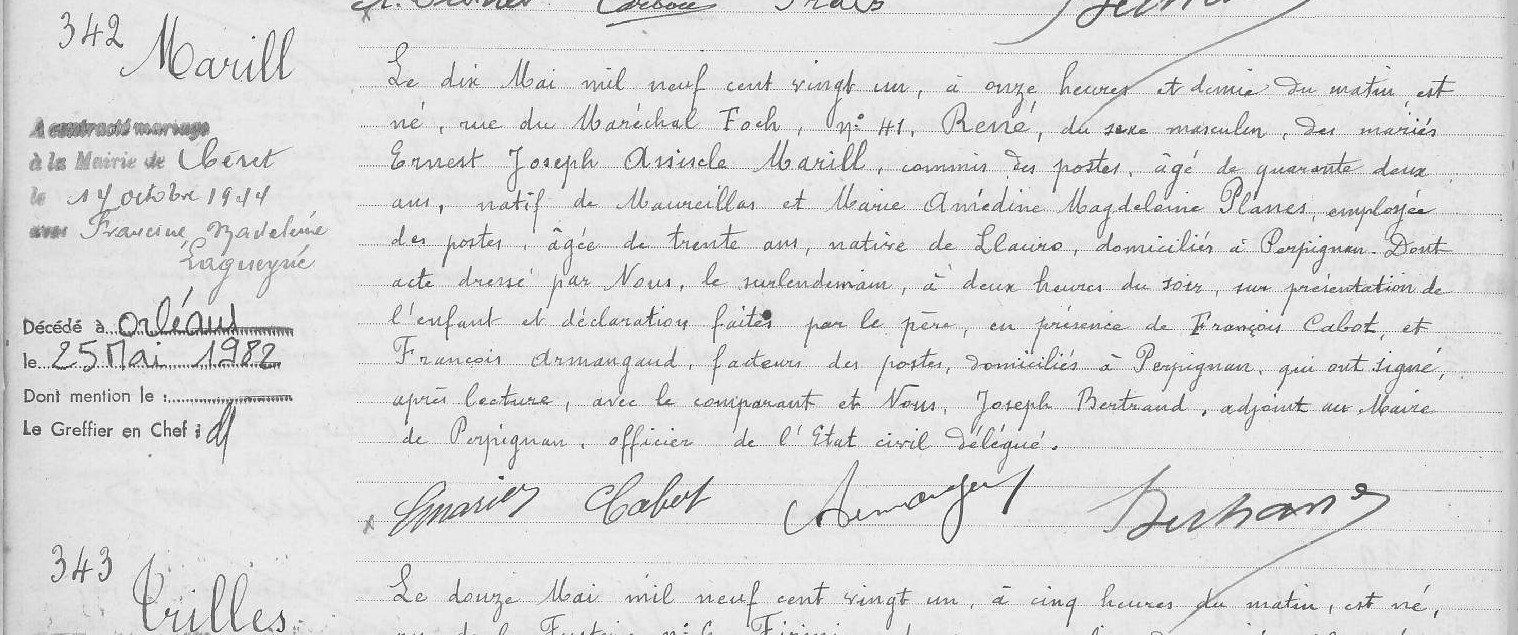 342
Marill
A contracté mariage
à la Mairie de Céret
le 14 octobre 1944
avec Francine Madeleine
Lagueyrie
Décédé à orléans
le 25 Mai 1982
Dont mention le :
Le Greffier en Chef :
Le dix Mai mil neuf cent vingt un, à onze heures et demie du matin, est
né, rue du Maréchal Foch, n° 41, René, du sexe masculin, des mariés
Ernest Joseph Assiscle Marill, commis des postes, âgé de quarante deux
ans, natif de Maureillas et Marie Amédine Magdeleine Planes, employée
des postes, âgée de trente ans, native de Llauro, domiciliés à Perpignan. Dont
acte dressé par Nous, le surlendemain, à deux heures du soir, sur présentation de
l'enfant et déclaration faites par le père, en présence de François Cabot, et
François Armangaud, facteurs des postes, domiciliés à Perpignan, qui ont signé,
après lecture, avec le comparant et Nous, Joseph Bertrand, adjoint au Maire
de Perpignan, officier de l'Etat civil délégué.
Cabot
343
Trilles
Le douze Mai mil neuf cent vingt un, à cinq heures du matin, est né,